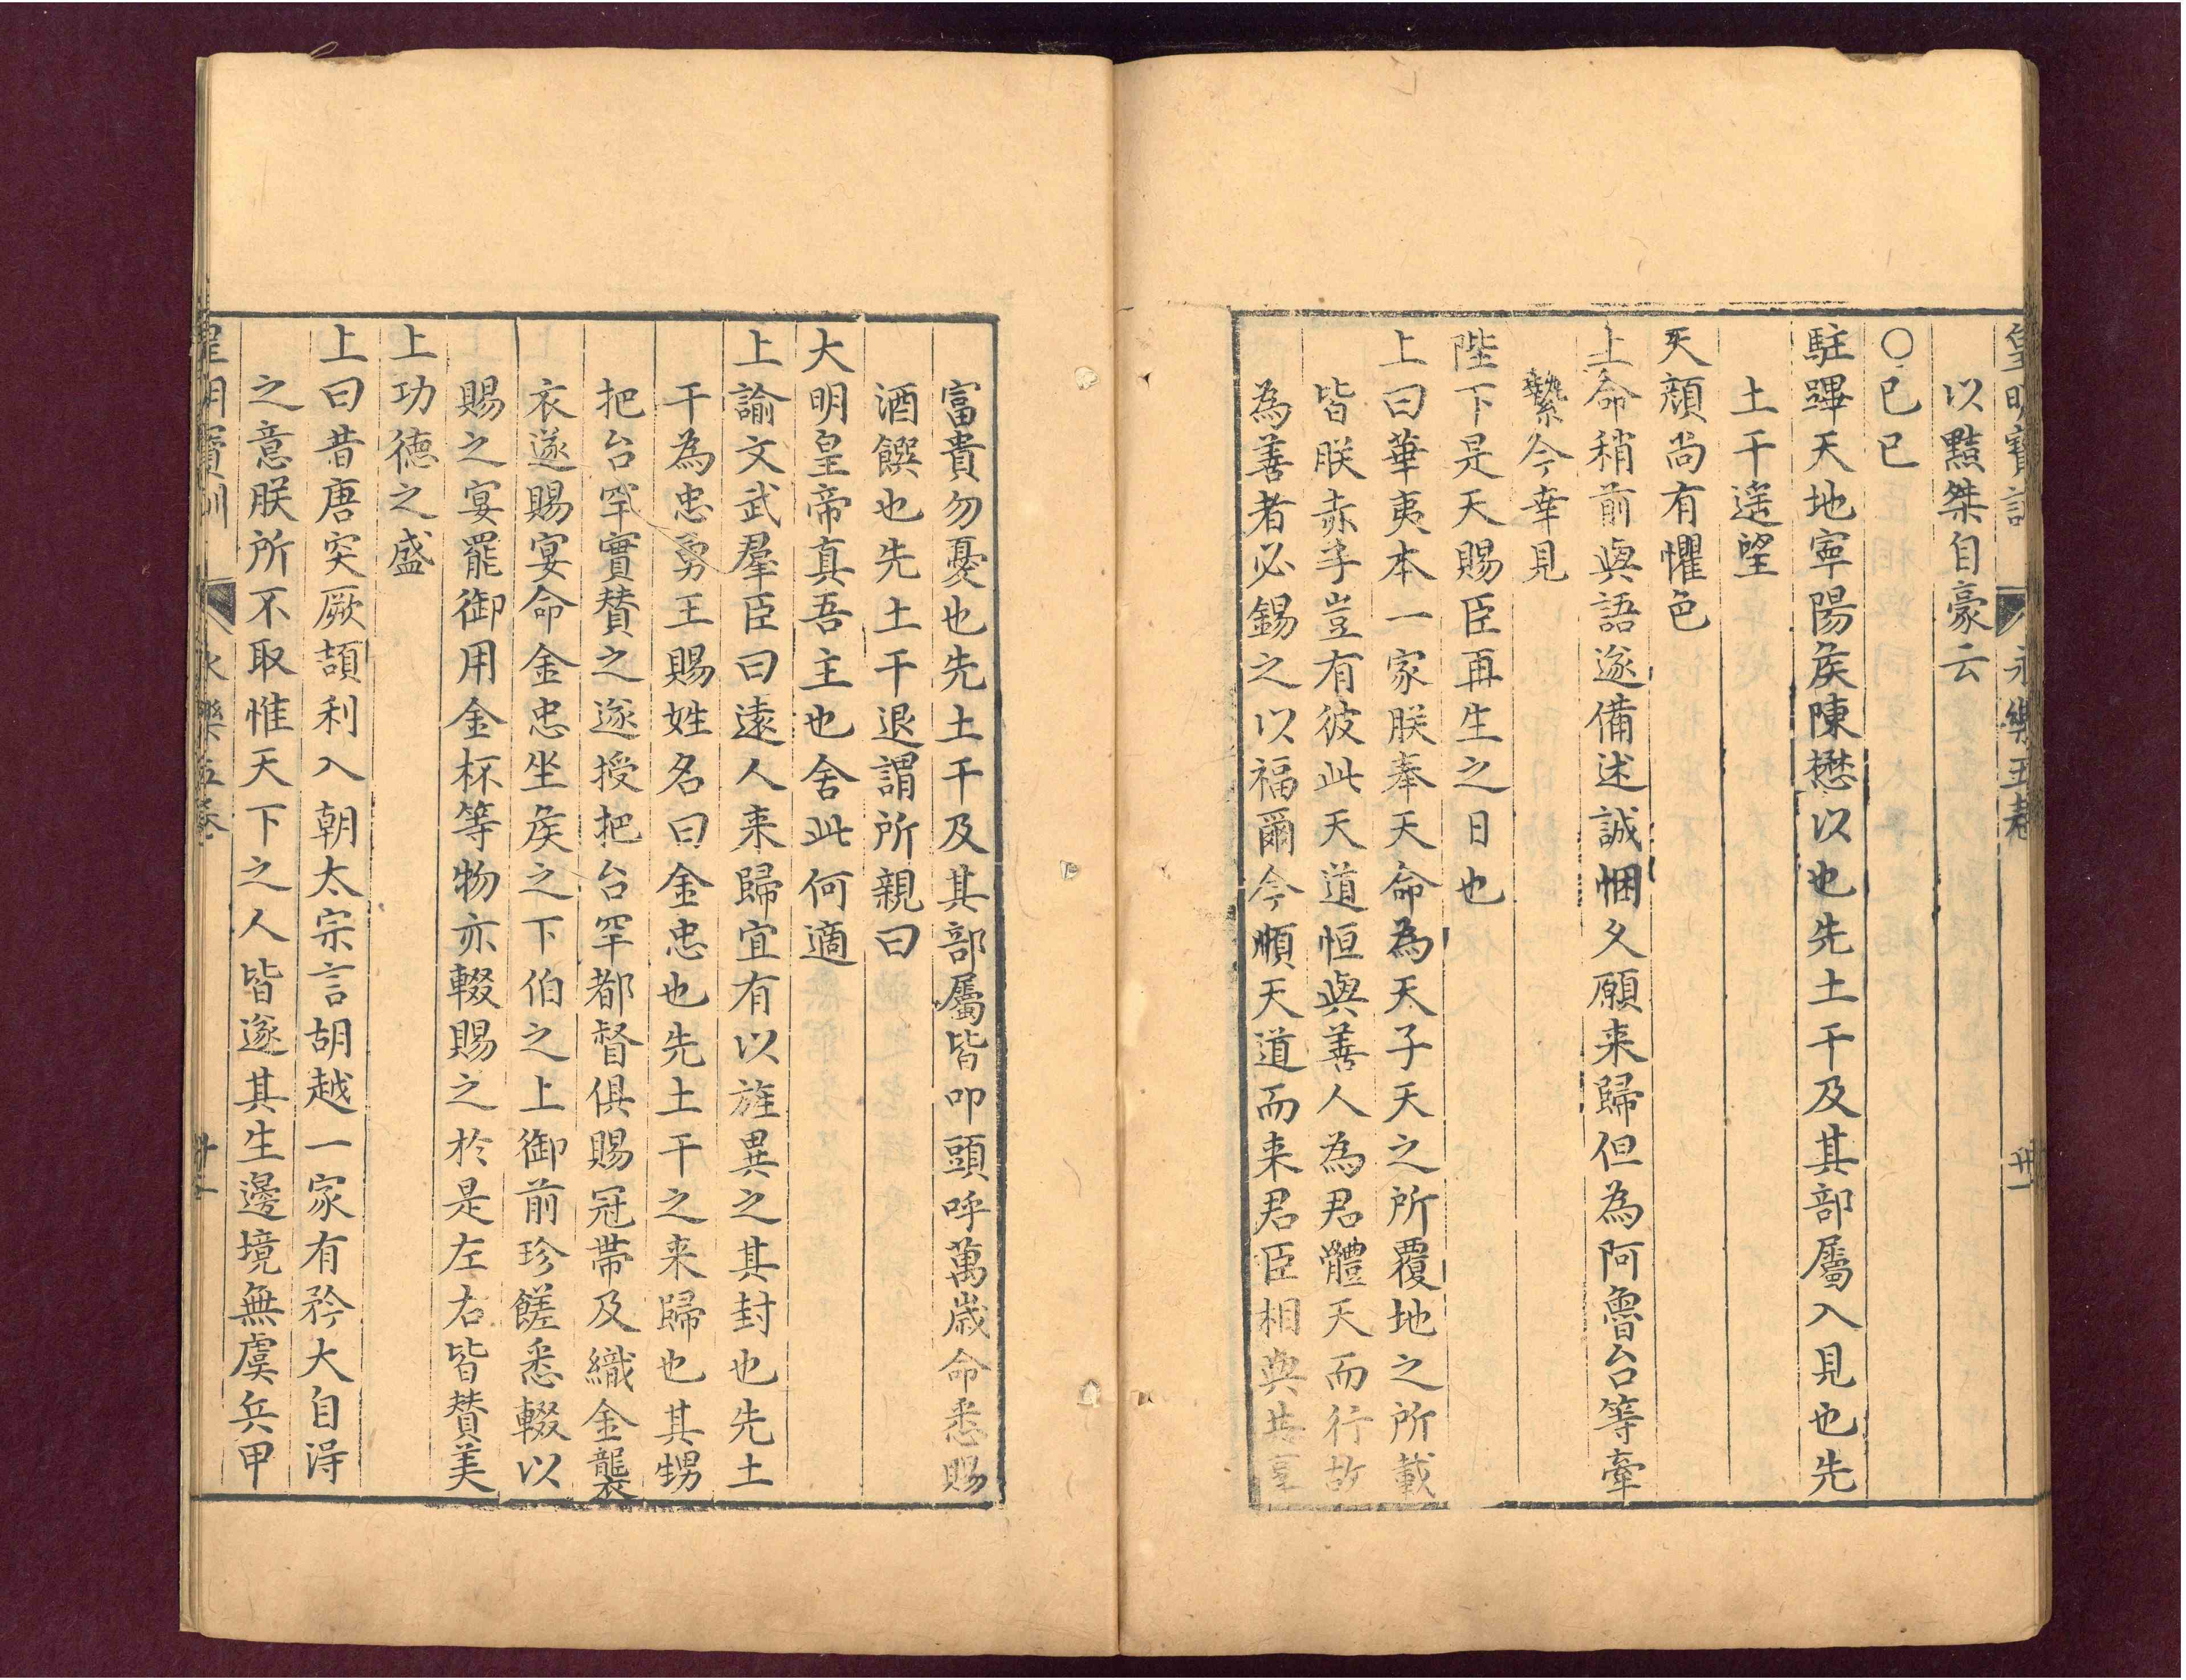 皇明寶訓 永樂五卷 卅一
以黠桀自豪云
○己巳
駐蹕天地寧陽侯陳懋以也先土干及其部屬入見也先
土干遙望
天顏尚有懼色
上命稍前與語遂備述誠悃久願来歸但為阿魯台等牽
縶今幸見
陛下是天賜臣再生之日也
上曰華夷本一家朕奉天命為天子天之所覆地之所載
皆朕赤子豈有彼此天道恒與善人為君體天而行故
為善者必錫之以福爾今順天道而来君臣相與共享
富貴勿憂也先土干及其部屬皆叩頭呼萬歲命悉賜
酒饌也先土干退謂所親曰
大明皇帝真吾主也舍此何適
上諭文武羣臣曰遠人来歸宜有以旌異之其封也先土
干為忠勇王賜姓名曰金忠也先土干之来歸也其甥
把台罕實賛之遂授把台罕都督俱賜冠帶及織金襲
衣遂賜宴命金忠坐侯之下伯之上御前珍饈悉輟以
賜之宴罷御用金杯等物亦輟賜之於是左右皆賛美
上功德之盛
上曰昔唐突厥頡利入朝太宗言胡越一家有矜大自得
之意朕所不取惟天下之人皆遂其生邊境無虞兵甲
皇明寶訓 永樂五卷